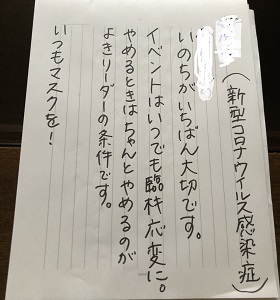 (新型コロナウイルス感染症)
いのちがいちばん大切です。
イベントはいつでも臨機応変に。
やめるときはちゃんとやめるのが
よきリーダーの条件です。
いつもマスクを!